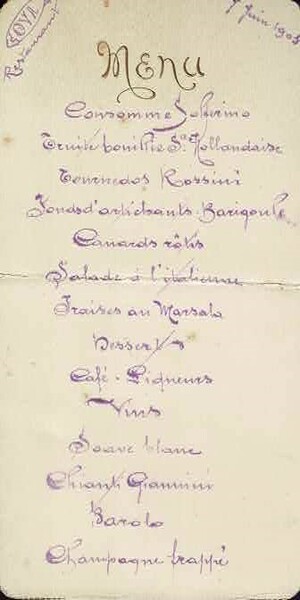 GOYA
Restaurant
7 Juin 1905
Menu
Consomme Solferino
Truite bouillie Sce Hollandaise
Tournedos Rossini
Fonds d'artichants Barigoule
Canards rôtis
Salade à l'italienne
Fraises au Marsala
Desserts
Café - Liqueurs
Vins
Soave blanc
Chianti Giannini
Barolo
Champagne frappé